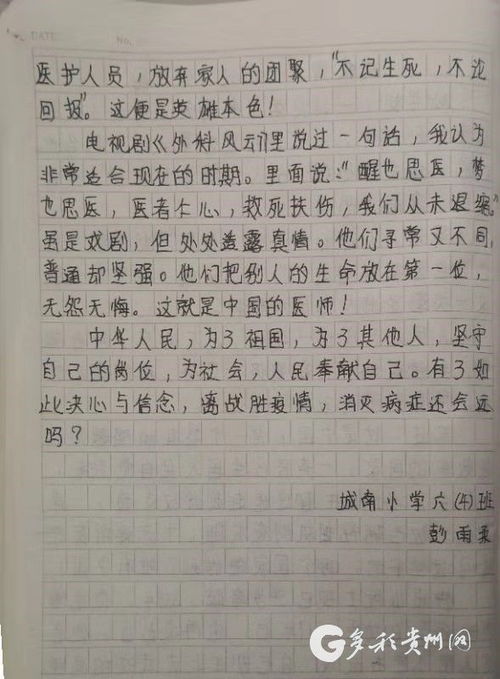 DATE
No.
医护人员，放弃家人的团聚，“不记生死，不论
回报”。这便是英雄本色！
电视剧《外科风云》里说过一句话，我认为
非常适合现在的时期。里面说：“醒也思医，梦
也思医，医者仁心，救死扶伤，我们从未退缩。”
虽是戏剧，但处处透露真情。他们寻常又不同，
普通却坚强。他们把别人的生命放在第一位，
无怨无悔。这就是中国的医师！
中华人民，为了祖国，为了其他人，坚守
自己的岗位，为社会，人民奉献自己。有了如
此决心与信念，离战胜疫情，消灭病症还会远
吗？
城南小学六（4）班
彭雨柔
多彩贵州网